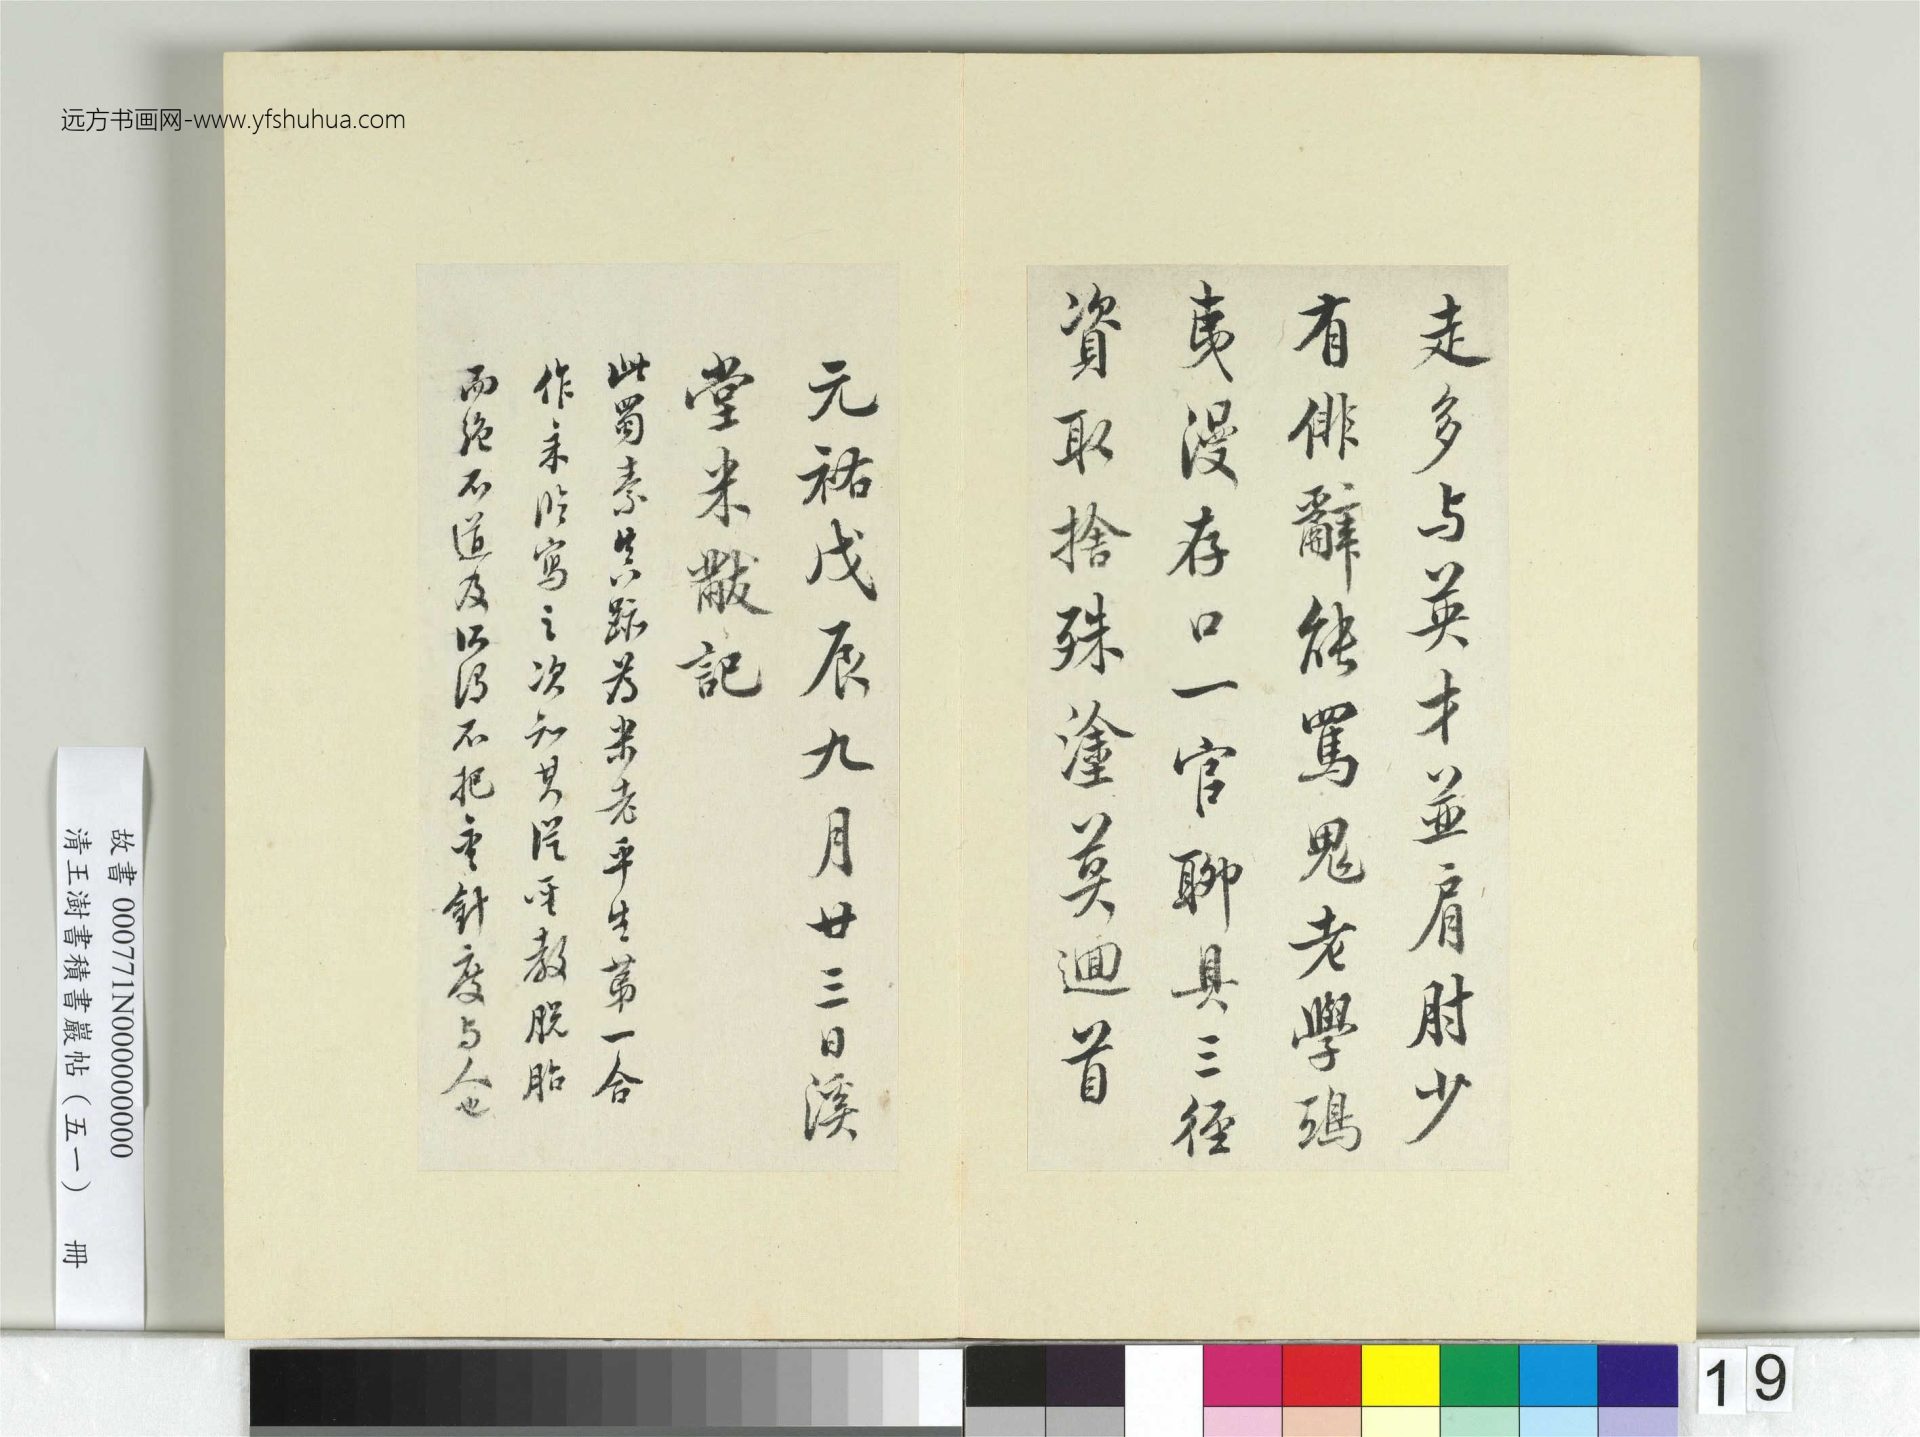 远方书画网-www.yfshuhua.com
走多与英才並肩肘少
有俳辭能罵鬼老學鴟
夷漫存口一官聊具三徑
資取捨殊塗莫迴首
元祐戊辰九月廿三日溪
堂米黻記
此蜀素真跡為米老平生第一合
作余臨寫之次知其從聖教脫胎
而絕不道及所謂不把金針度与人也
故書 000771N000000000
清王澍書積書巖帖（五一） 冊
19